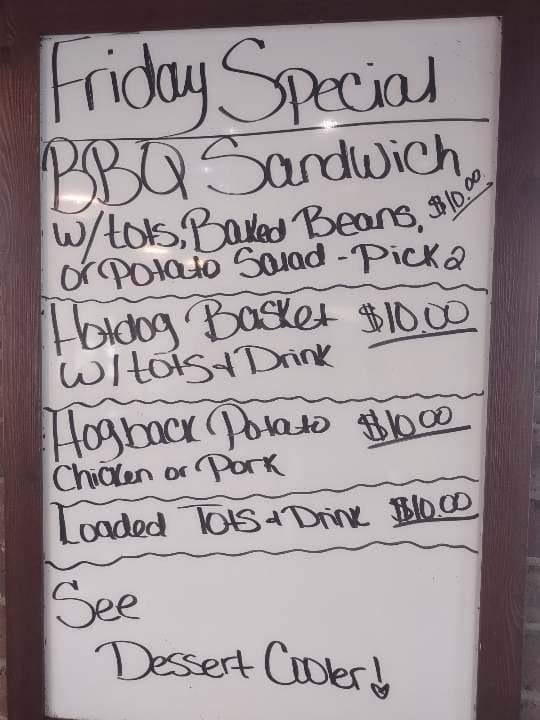 Friday Special
BBQ Sandwich
w/tots, Baked Beans, $10.00
or Potato Salad - Pick 2
Hotdog Basket $10.00
w/tots & Drink
Hogback Potato $10.00
Chicken or Pork
Loaded Tots & Drink $10.00
See
Dessert Cooler!